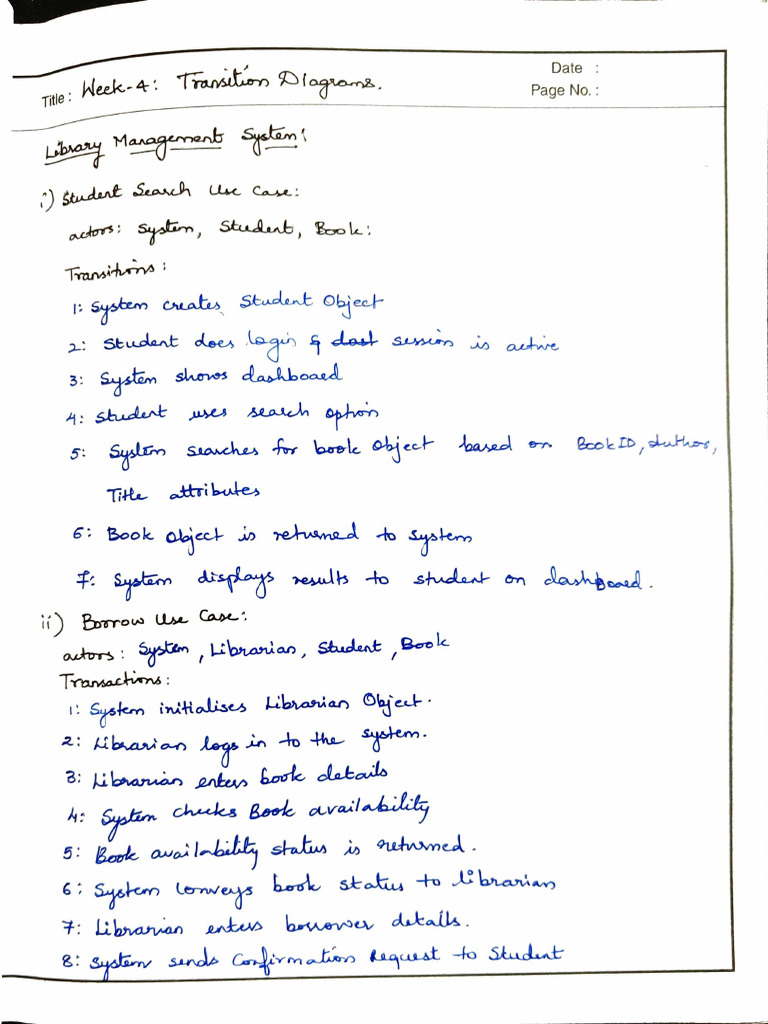 Date :
Title : Week-4: Transition Diagrams.
Page No. :
Library Management System:
i) Student Search Use Case:
actors: System, Student, Book:
Transitions:
1: System creates Student Object
2: Student does login & session is active
3: System shows dashboard
4: Student uses search option
5: System searches for book Object based on BookID, Author,
Title attributes
6: Book Object is returned to system
7: System displays results to student on dashboard.
ii) Borrow Use Case:
actors: System, Librarian, Student, Book
Transactions:
1: System initialises Librarian Object.
2: Librarian logs in to the system.
3: Librarian enters book details
4: System checks Book availability
5: Book availability status is returned.
6: System conveys book status to librarian
7: Librarian enters borrower details.
8: System sends Confirmation Request to Student